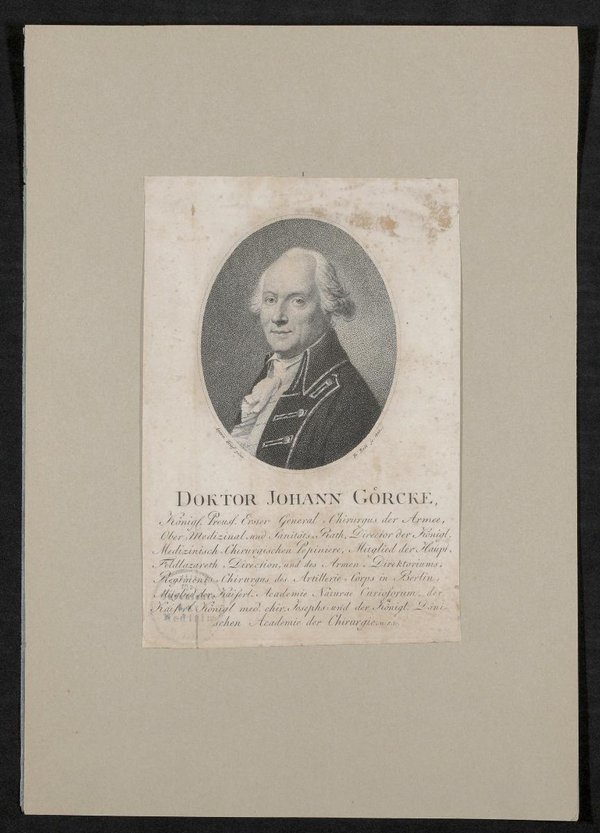 DOKTOR JOHANN GÖRCKE,
Königl. Preusl. Erster General-Chirurgus der Armee,
Ober Medizinal und Sanitäts-Rath, Director der Königl.
Medizinisch-Chirurgischen Pepiniere, Mitglied der Haupt
Feldlazareth-Direction, und des Armen-Direktoriums,
Regiments-Chirurgus des Artillerie-Corps in Berlin,
Mitglied der Kaiserl. Academie Naturae Curiosorum, der
Kaiserl. Königl. med. chir. Josephs und der Königl. Däni-
schen Academie der Chirurgie
Medizin